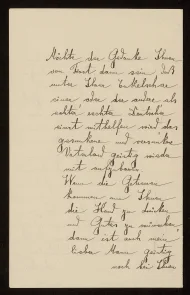 Möchte der Gedanke Ihnen
ein Trost dann sein, daß
unter Ihren Schülern
einer oder der andere als
echter rechter Deutscher
einst mithelfen wird das
gesunkene und verarmte
Vaterland geistig wieder
mit aufzubauen.
Wenn die Getreuen
kommen um Ihnen
die Hand zu drücken
und Gutes zu wünschen,
dann ist auch mein
lieber Mann geistig
noch bei Ihnen